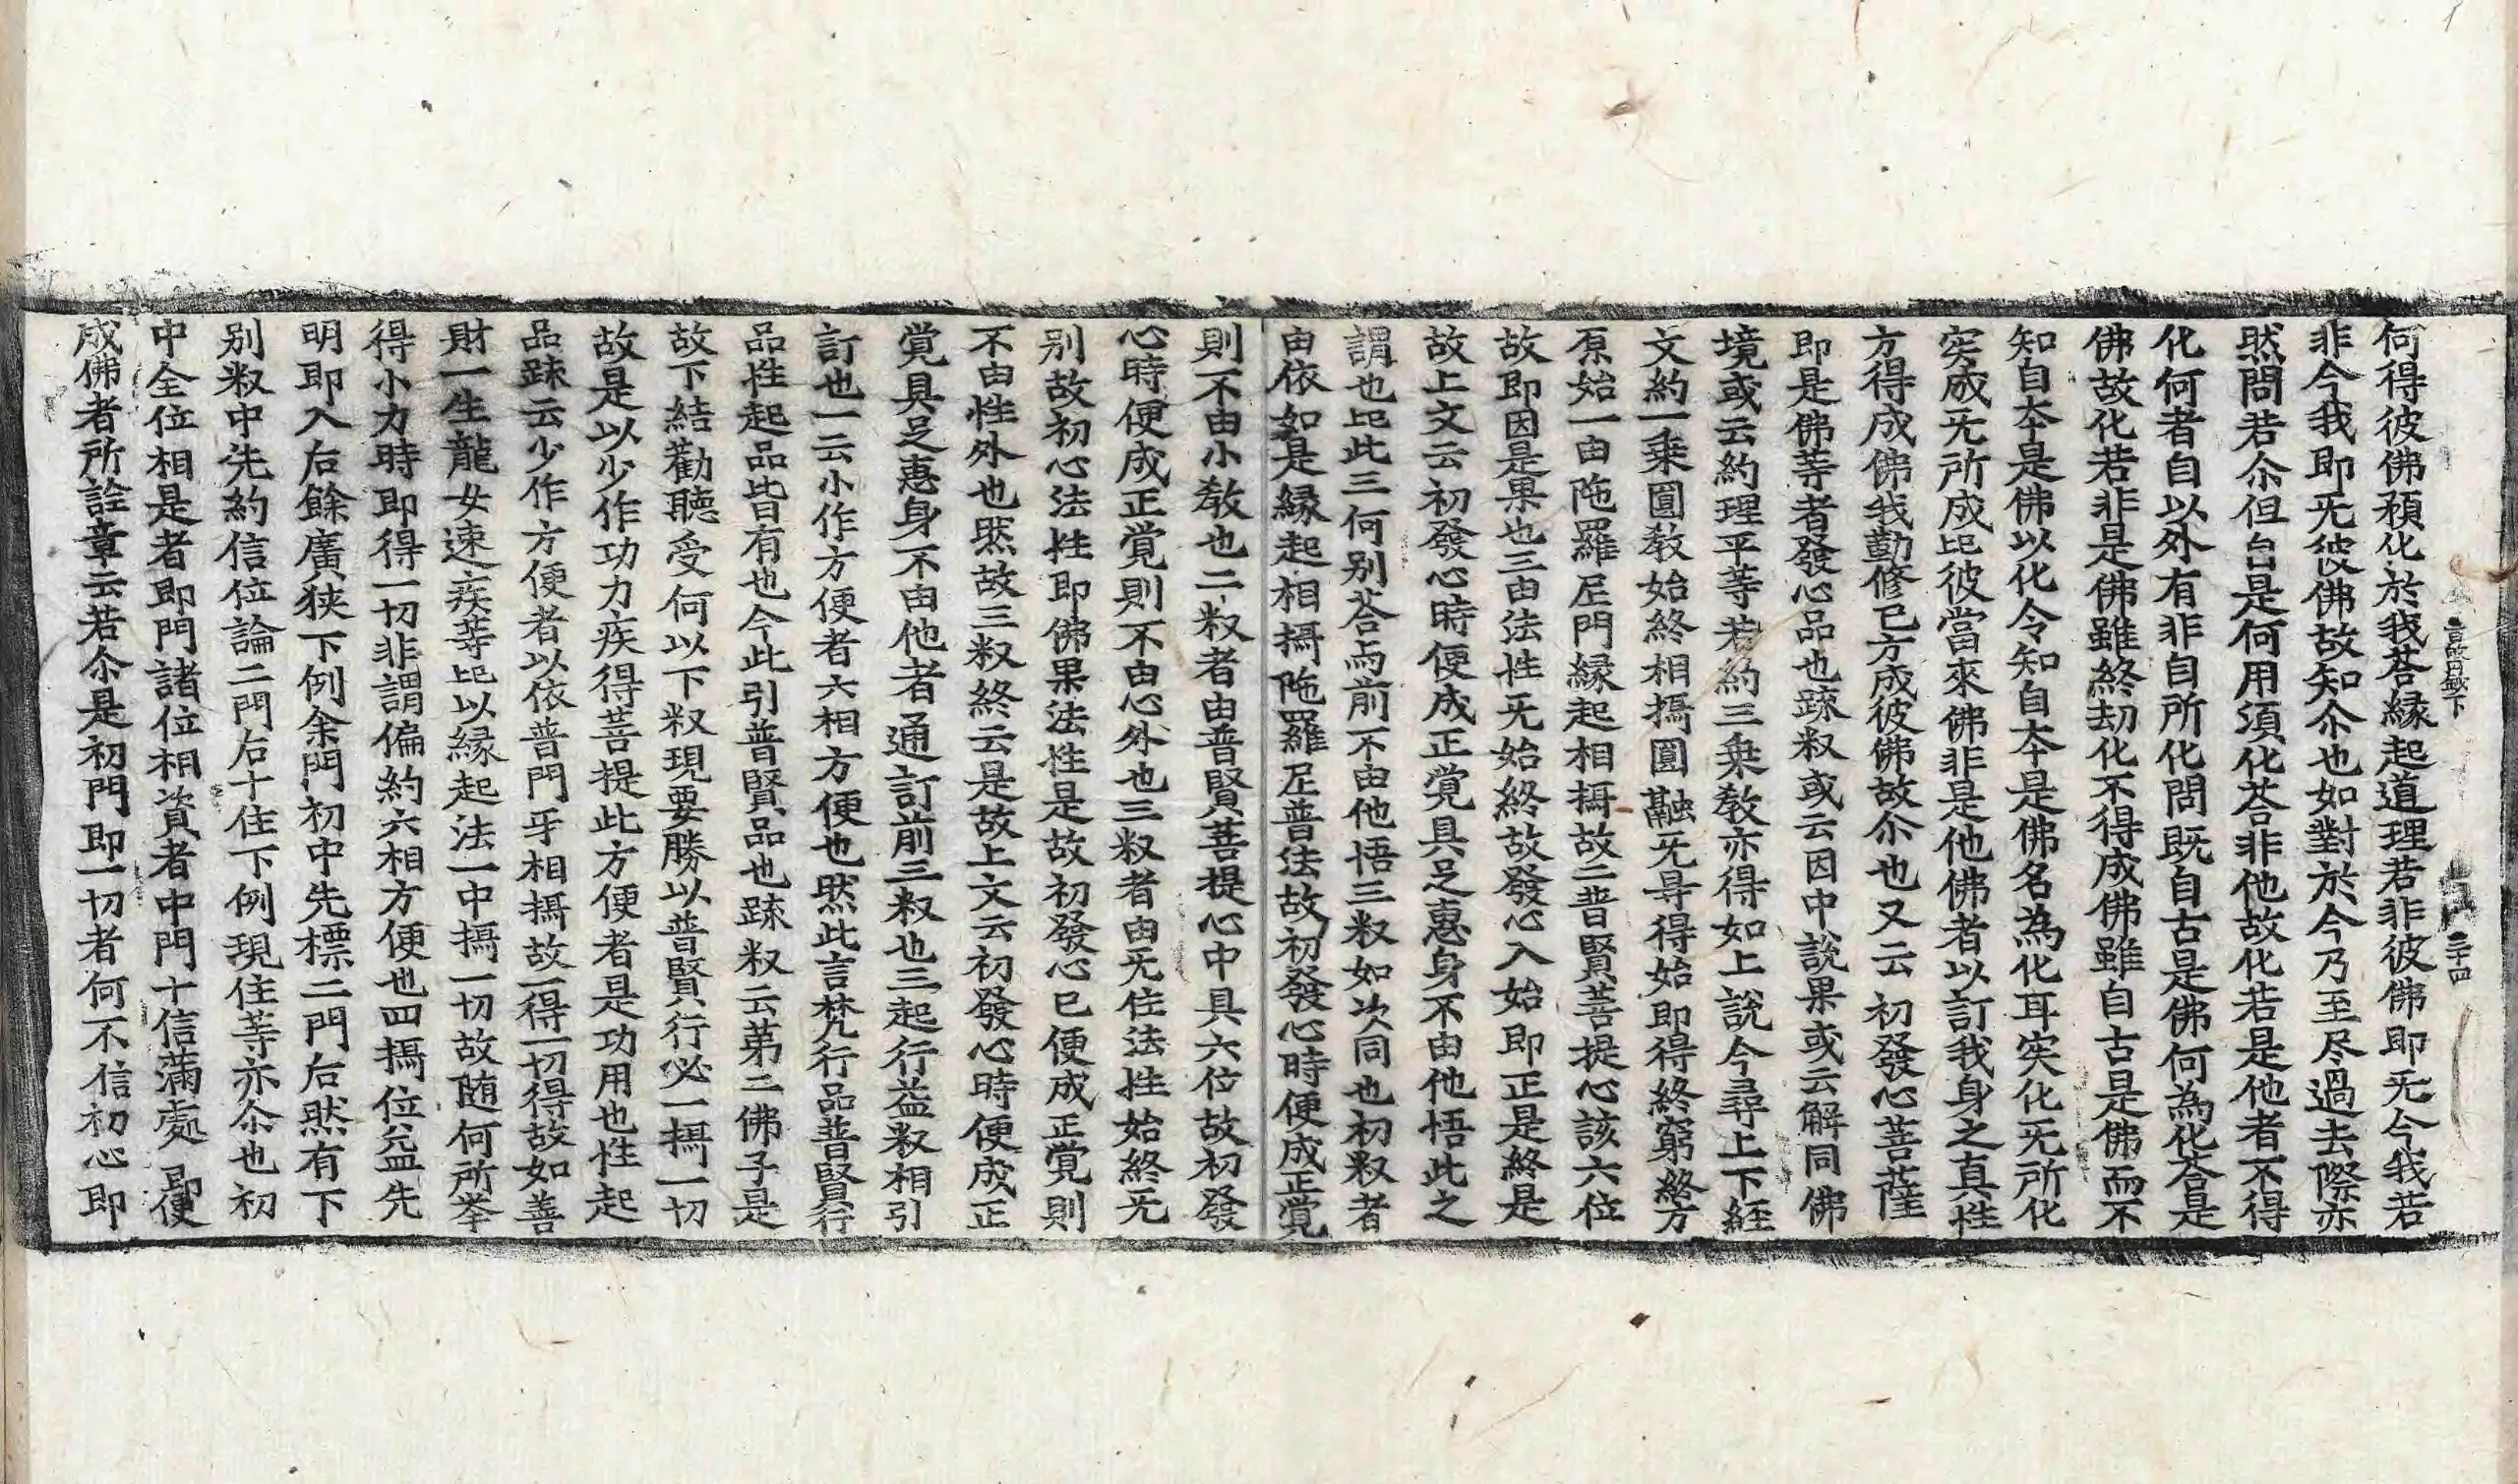 何得彼佛預化於我荅縁起道理若非彼佛即旡今我若
非今我即旡彼佛故知尒也如對於今乃至尽過去際亦
然問若尒但自是何用須化荅非他故化若是他者不得
化何者自以外有非自所化問既自古是佛何為化荅是
佛故化若非是佛雖終劫化不得成佛雖自古是佛而不
知自夲是佛以化令知自夲是佛名為化耳实化旡所化
实成旡所成此彼當來佛非是他佛者以訂我身之真性
方得成佛我勤修已方成彼佛故尒也又云初發心菩薩
即是佛等者發心品也疎叙或云因中說果或云解同佛
境或云約理平等若約三乗教亦得如上說今尋上下経
文約一乗圓教始終相攝圓融旡㝵得始即得終窮終方
原始一由陁羅尼門縁起相攝故二普賢菩提心該六位
故即因是果也三由法性旡始終故發心入始即正是終是
故上文云初發心時便成正覺具足惠身不由他悟此之
謂也此三何别荅与前不由他悟三叙如次同也初叙者
由依如是縁起相攝陁羅尼普法故初發心時便成正覺
則不由小教也二叙者由普賢菩提心中具六位故初發
心時便成正覺則不由心外也三叙者由旡住法性始終旡
别故初心法性即佛果法性是故初發心已便成正覺則
不由性外也然故三叙終云是故上文云初發心時便成正
覺具足惠身不由他者通訂前三叙也三起行益叙相引
訂也一云小作方便者六相方便也然此言梵行品普賢行
品性起品皆有也今此引普賢品也疎叙云苐二佛子是
故下結勸聽受何以下叙現要勝以普賢行必一攝一切
故是以少作功力疾得菩提此方便者是功用也性起
品疎云少作方便者以依普門牙相攝故一得一切得故如善
財一生龍女速疾等此以縁起法一中攝一切故随何所举
得小力時即得一切非謂偏約六相方便也四攝位益先
明即入右餘廣狹下例余門初中先標二門右然有下
别叙中先約信位論二門右十住下例現住等亦尒也初
中全位相是者即門諸位相資者中門十信滿處即便
成佛者所詮章云若尒是初門即一切者何不信初心即
三十四